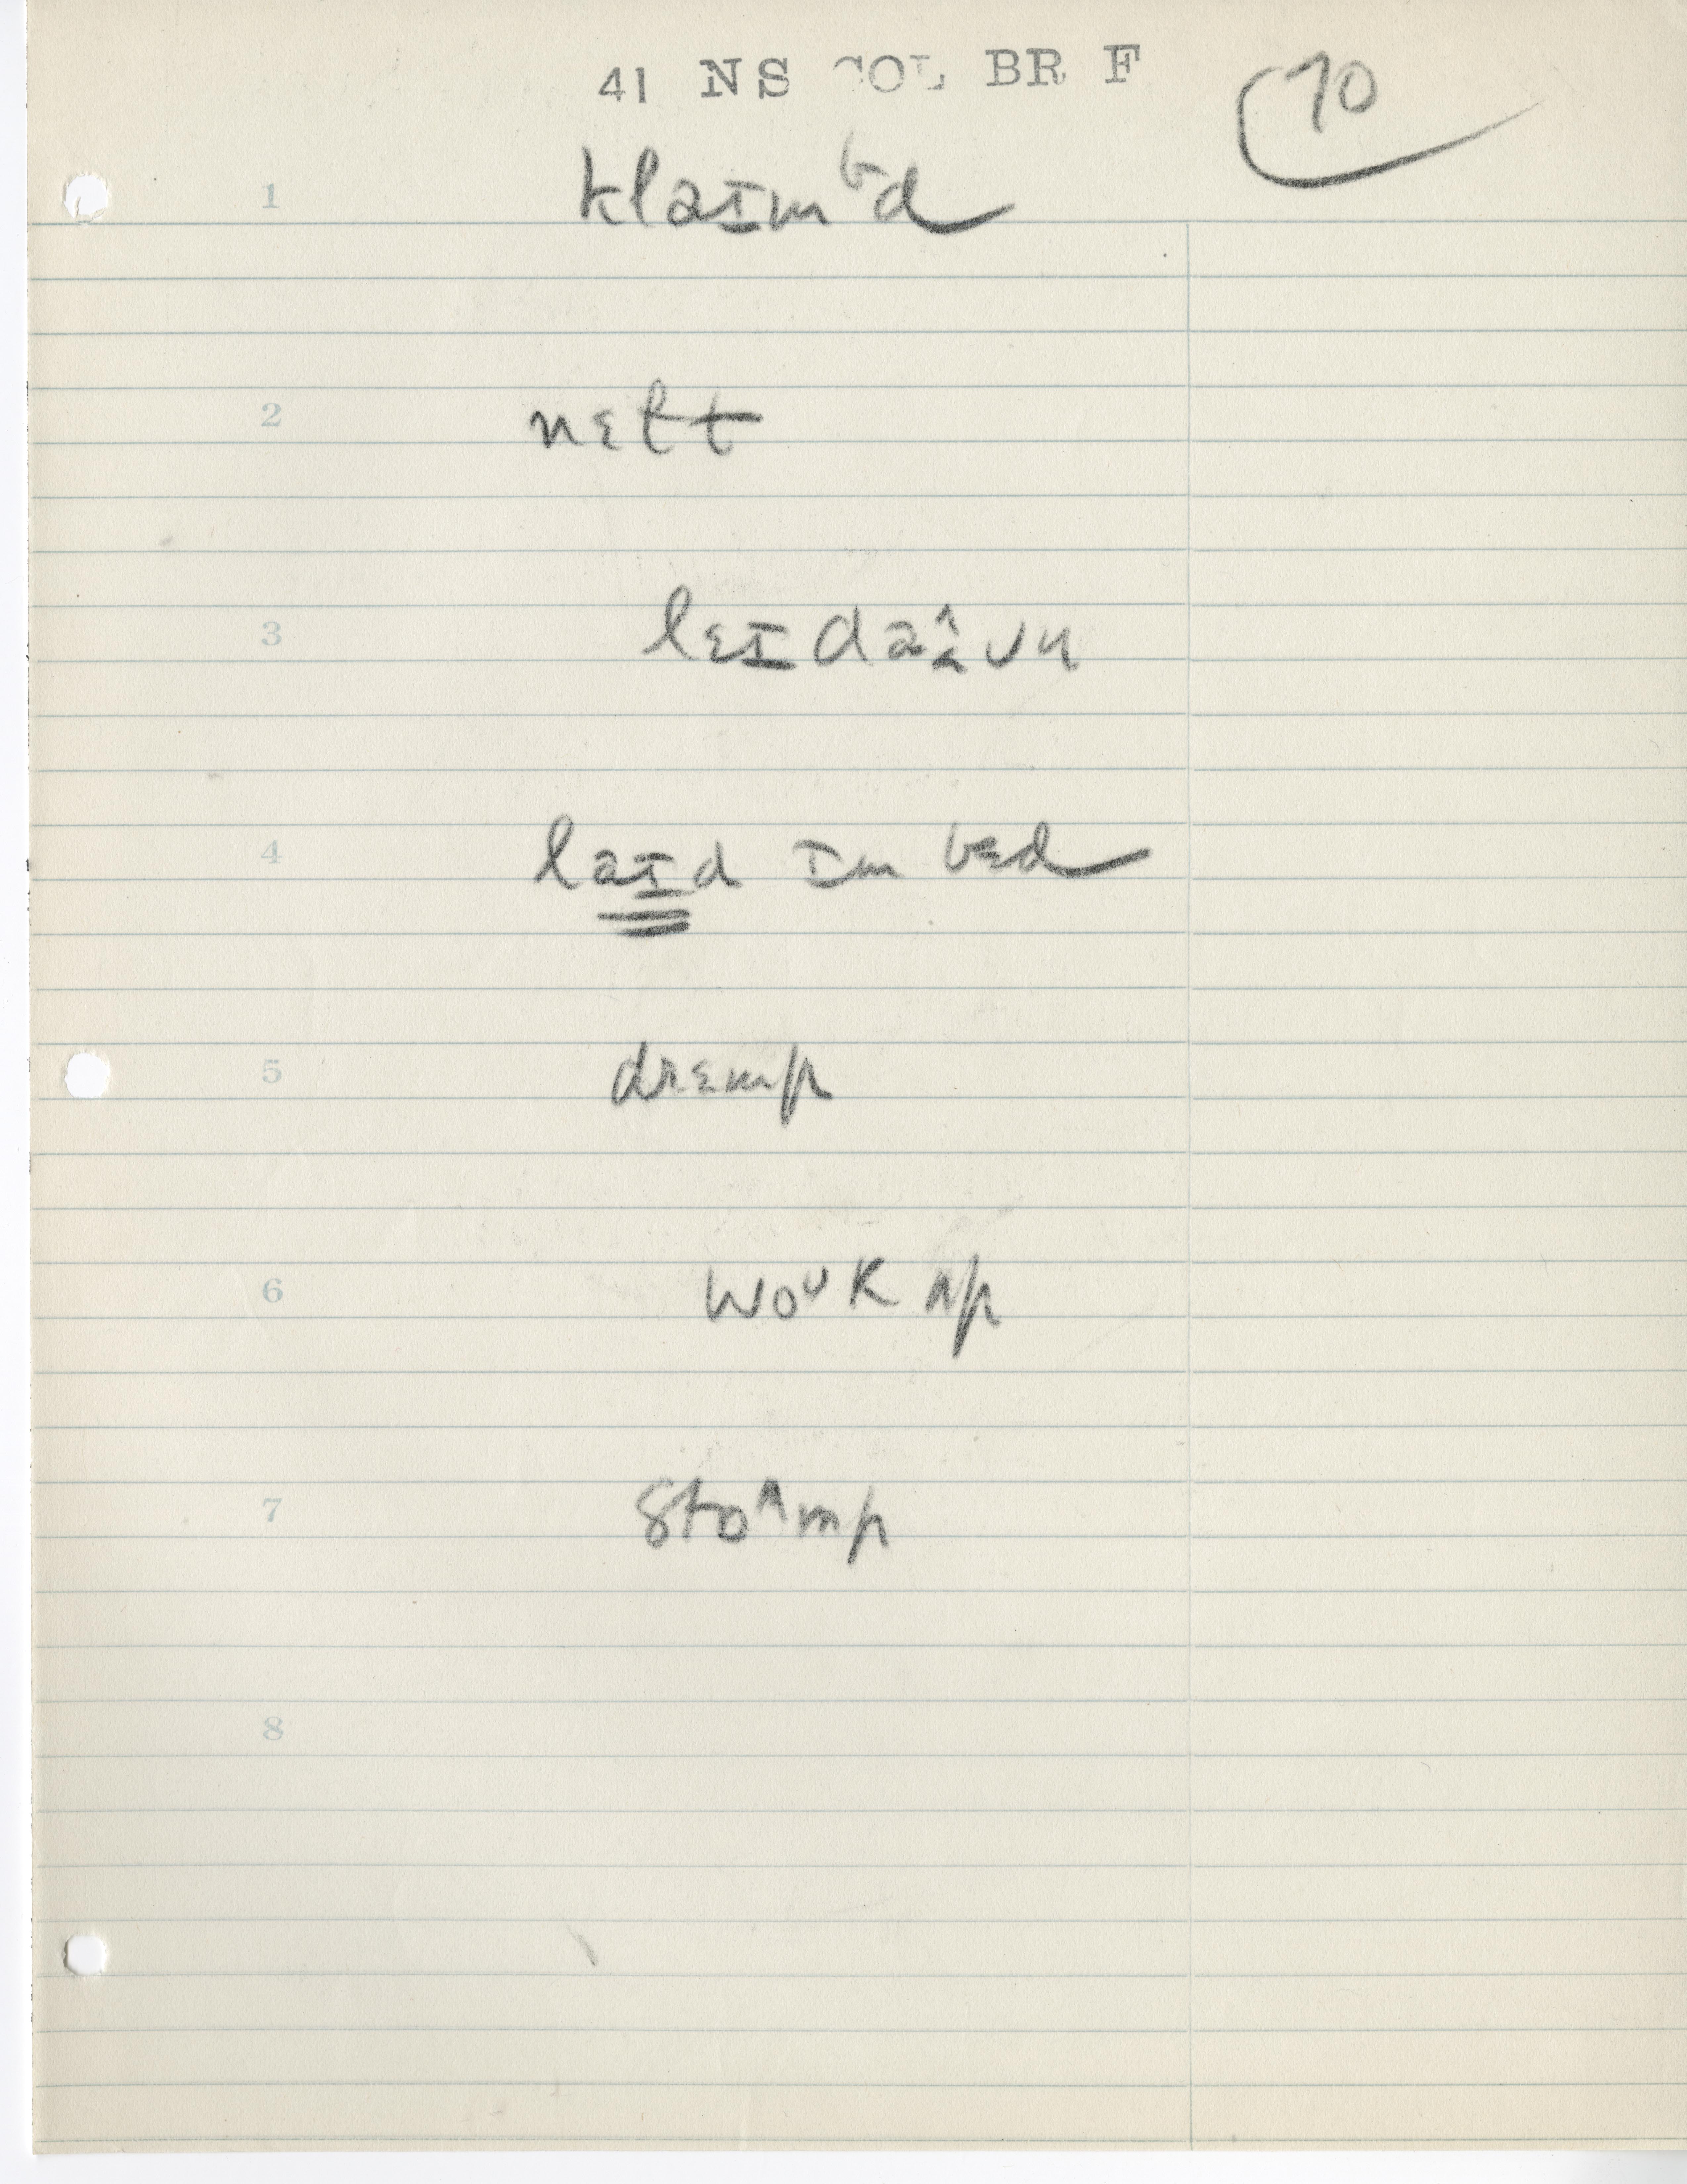 41 NS COL BR F
70
1 klaɪmᵇd
2 nɛɫt
3 lɛɪ daʌ̂ʊn
4 laɪd ɪm bɛd
5 drɛmp
6 woᴜk ʌp
7 stoᴧmp
8